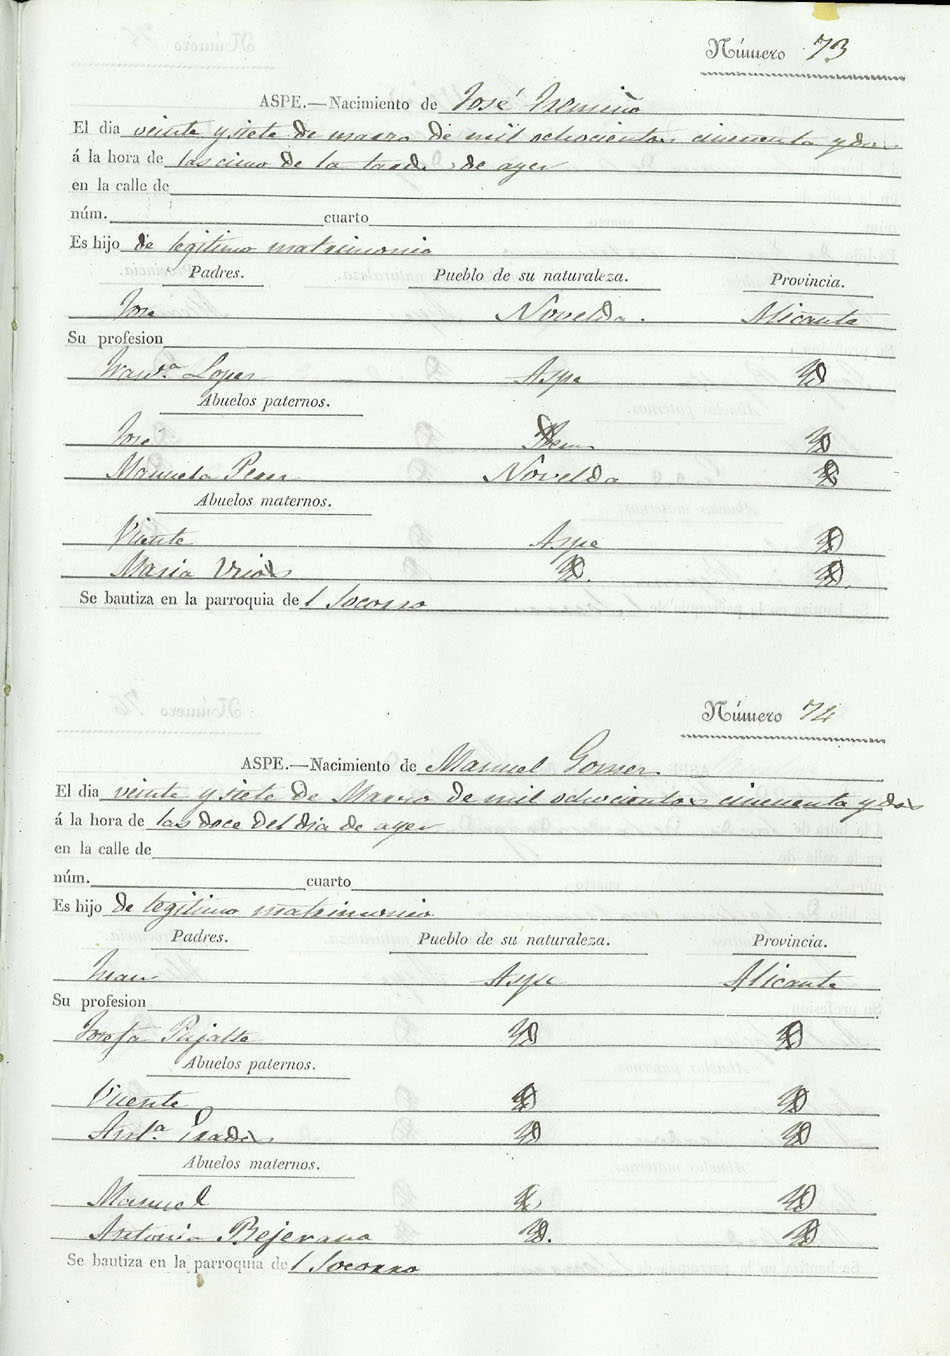 Número 73
ASPE.—Nacimiento de José
El dia veinte y siete de marzo de mil ochocientos cincuenta y dos
á la hora de las cinco de la tarde de ayer
en la calle de
núm. cuarto
Es hijo de legitimo matrimonio
Padres. Pueblo de su naturaleza. Provincia.
Jose Novelda. Alicante
Su profesion
Franca. Lopez Aspe YD
Abuelos paternos.
José YD
Manuela Perez Novelda YD
Abuelos maternos.
Vicente Aspe YD
Maria YD. YD.
Se bautiza en la parroquia del Socorro
Número 74
ASPE.—Nacimiento de Manuel Gomez
El dia veinte y siete de Marzo de mil ochocientos cincuenta y dos
á la hora de las doce del dia de ayer
en la calle de
núm. cuarto
Es hijo de legitimo matrimonio
Padres. Pueblo de su naturaleza. Provincia.
Juan Aspe Alicante
Su profesion
Josefa Pujalte YD YD
Abuelos paternos.
Vicente YD YD
Anta. Prades YD YD
Abuelos maternos.
Manuel YD YD
Antonia Bejerana YD. YD
Se bautiza en la parroquia del Socorro